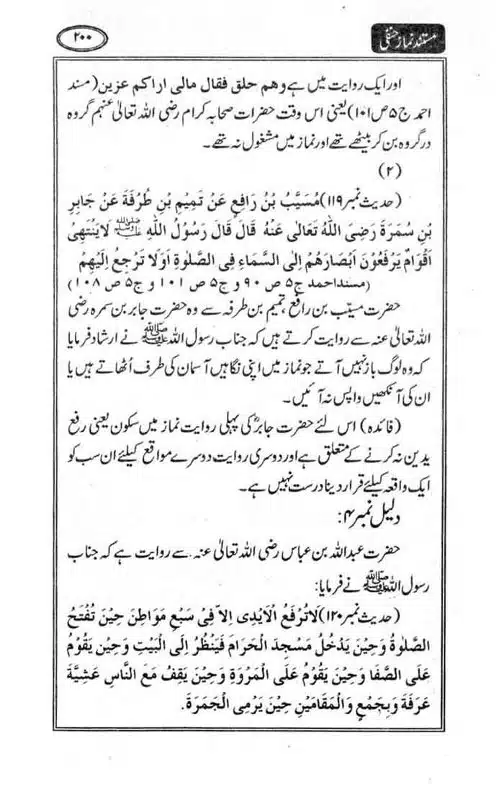 مستند نماز حنفی
۲۰۰
اور ایک روایت میں ہے وهم حلق فقال مالی اراکم عزین (مسند
احمد ج۵ ص۱۰۱) یعنی اس وقت حضرات صحابہ کرام رضی اللہ تعالیٰ عنہم گروہ
در گروہ بن کر بیٹھے تھے اور نماز میں مشغول نہ تھے۔
(۲)
(حدیث نمبر ۱۱۹) مُسَيَّبُ بْنُ رَافِعٍ عَنْ تَمِيْمِ بْنِ طُرْفَةَ عَنْ جَابِرِ
بْنِ سَمُرَةَ رَضِیَ اللّٰهُ تَعَالٰی عَنْهُ قَالَ قَالَ رَسُوْلُ اللّٰهِ ﷺ لَايَنْتَهِیْ
اَقْوَامٌ يَرْفَعُوْنَ اَبْصَارَهُمْ اِلَی السَّمَاءِ فِی الصَّلٰوةِ اَوْلَا تَرْجِعُ اِلَيْهِمْ
(مسند احمد ج۵ ص ۹۰ و ج۵ ص ۱۰۱ و ج۵ ص ۱۰۸)
حضرت مسیّب بن رافع، تمیم بن طرفہ سے وہ حضرت جابر بن سمرہ رضی
اللہ تعالیٰ عنہ سے روایت کرتے ہیں کہ جناب رسول اللہ ﷺ نے ارشاد فرمایا
کہ وہ لوگ باز نہیں آتے جو نماز میں اپنی نگاہیں آسمان کی طرف اُٹھاتے ہیں یا
ان کی آنکھیں واپس نہ آئیں۔
(فائدہ) اس لئے حضرت جابرؓ کی پہلی روایت نماز میں سکون یعنی رفع
یدین نہ کرنے کے متعلق ہے اور دوسری روایت دوسرے مواقع کیلئے ان سب کو
ایک واقعہ کیلئے قرار دینا درست نہیں ہے۔
دلیل نمبر ۴:
حضرت عبداللہ بن عباس رضی اللہ تعالیٰ عنہ سے روایت ہے کہ جناب
رسول اللہ ﷺ نے فرمایا:
(حدیث نمبر ۱۲۰) لَاتُرْفَعُ الْاَيْدِیْ اِلَّا فِیْ سَبْعِ مَوَاطِنَ حِيْنَ تُفْتَحُ
الصَّلٰوةُ وَحِيْنَ يَدْخُلُ مَسْجِدَ الْحَرَامَ فَيَنْظُرُ اِلَی الْبَيْتِ وَحِيْنَ يَقُوْمُ
عَلَی الصَّفَا وَحِيْنَ يَقُوْمُ عَلَی الْمَرْوَةِ وَحِيْنَ يَقِفُ مَعَ النَّاسِ عَشِيَّةَ
عَرَفَةَ وَبِجَمْعٍ وَالْمَقَامَيْنِ حِيْنَ يَرْمِی الْجَمْرَةَ.